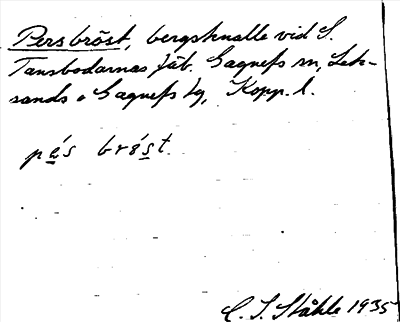 Persbröst, bergsknalle vid S.
Tansbodarnas fäb. Gagnefs sn, Lek-
sands o Gagnefs tg, Kopp. l.
pẹ́s brǿṣt.
C. I. Ståhle 1935